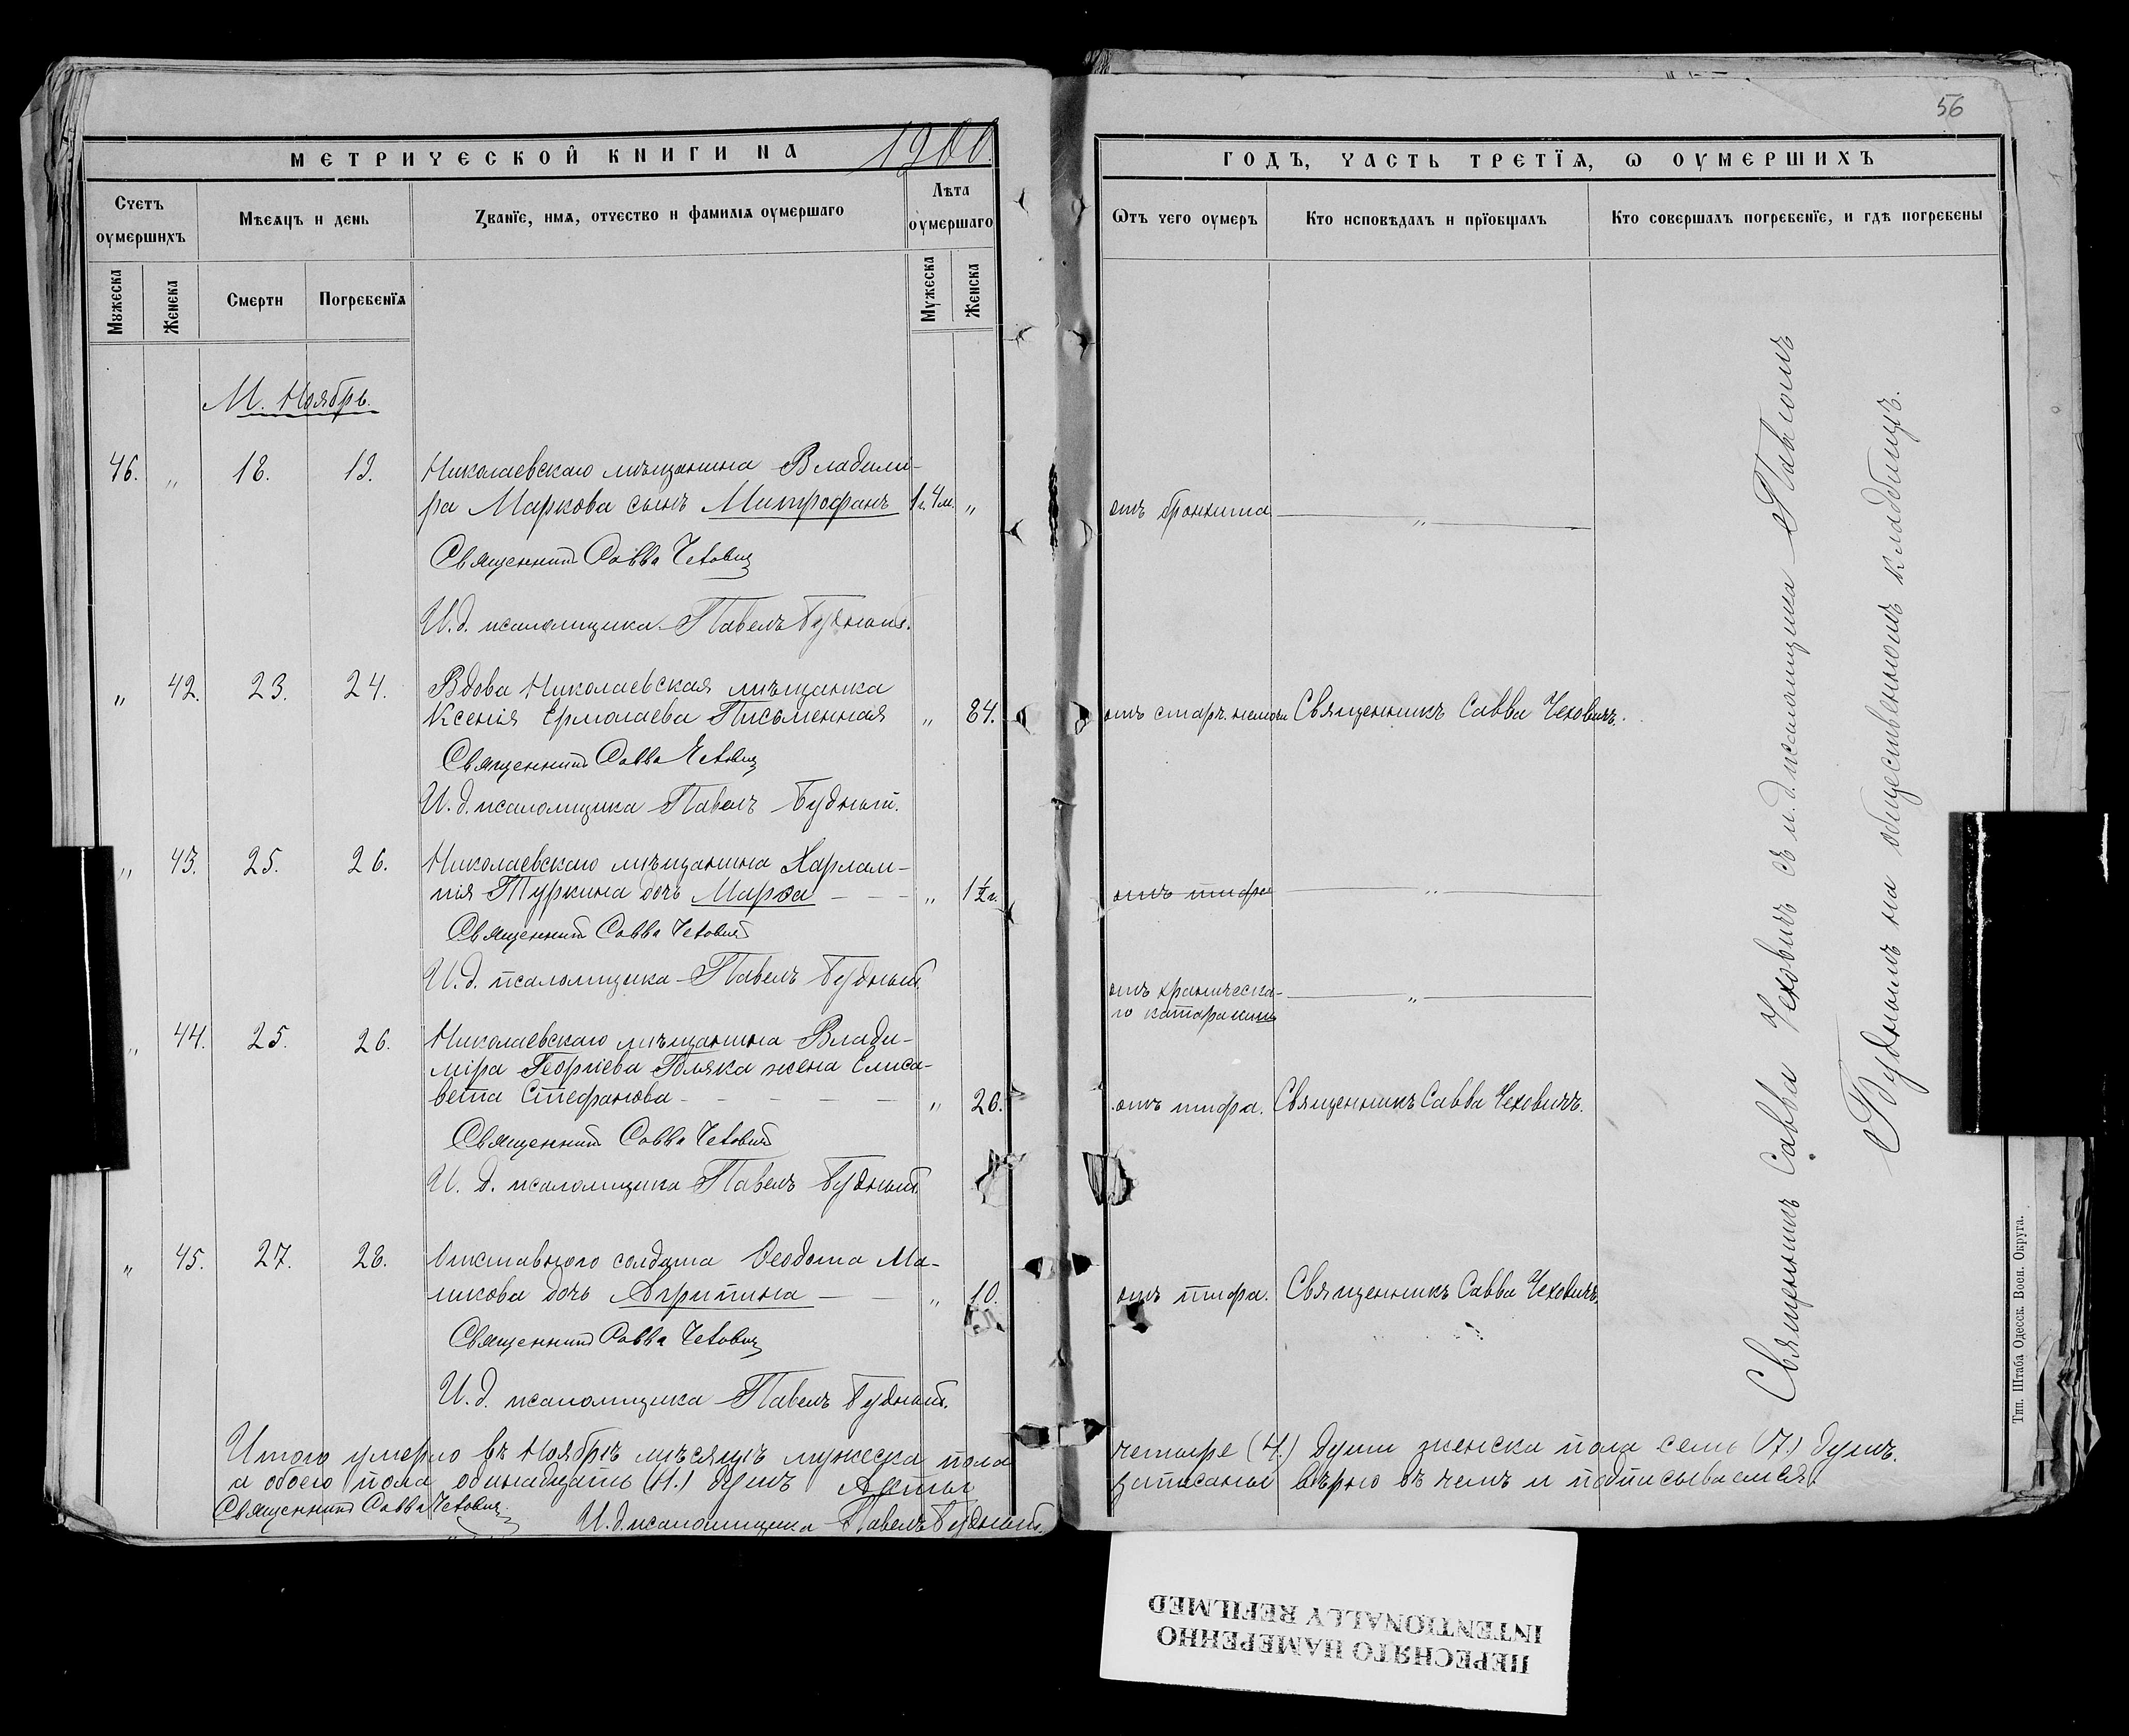 МЕТРИЧЕСКОЙ КНИГИ НА 1900
Счетъ оумершихъ
Мѣсяцъ и день
Званїе, имя, отчество и фамилїя оумершаго
Лѣта оумершаго
Мужеска
Женска
Смерти
Погребенїя
Мужеска
Женска
М. Ноябрь.
46. „ 18. 19. Николаевскаго мѣщанина Владими-
ра Маркова сынъ Митрофанъ 1 г. 4 м. „
Священникъ Савва Чеховичъ
И. д. псаломщика Павелъ Будный.
„ 42. 23. 24. Вдова Николаевская мѣщанка
Ксенія Ермолаева Письменная „ 84.
Священникъ Савва Чеховичъ
И. д. псаломщика Павелъ Будный.
„ 43. 25. 26. Николаевскаго мѣщанина Харлам-
пія Туркина дочь Марѳа „ 1½ г.
Священникъ Савва Чеховичъ
И. д. псаломщика Павелъ Будный.
„ 44. 25. 26. Николаевскаго мѣщанина Влади-
міра Георгіева жена Елиса-
вета Стефанова „ 26.
Священникъ Савва Чеховичъ
И. д. псаломщика Павелъ Будный.
„ 45. 27. 28. Отставного солдата Ѳеодота Ма-
дочь Агрипина „ 10.
Священникъ Савва Чеховичъ
И. д. псаломщика Павелъ Будный.
Итого умерло въ Ноябрѣ мѣсяцѣ мужеска пола
и обоего пола одинадцать (11.) душъ Акты
Священникъ Савва Чеховичъ
И. д. псаломщика Павелъ Будный.
56
ГОДЪ, ЧАСТЬ ТРЕТЇѦ, Ѡ ОУМЕРШИХЪ
Ѿтъ чего оумеръ
Кто исповѣдалъ и прїобщалъ
Кто совершалъ погребенїе, и гдѣ погребены
отъ бронхита „
отъ старч. немочи Священникъ Савва Чеховичъ.
отъ тифа „
отъ хроническа-
го „
отъ тифа. Священникъ Савва Чеховичъ.
отъ тифа. Священникъ Савва Чеховичъ.
Священникъ Савва Чеховичъ съ и. д. псаломщика Павломъ
Буднымъ на общественномъ кладбищѣ.
четыре (4.) души женска пола семь (7.) душъ.
записаны вѣрно въ чемъ и подписываемся.
Тип. Штаба Одесск. Воен. Округа.
ПЕРЕСНЯТО НАМЕРЕННО
INTENTIONALLY REFILMED